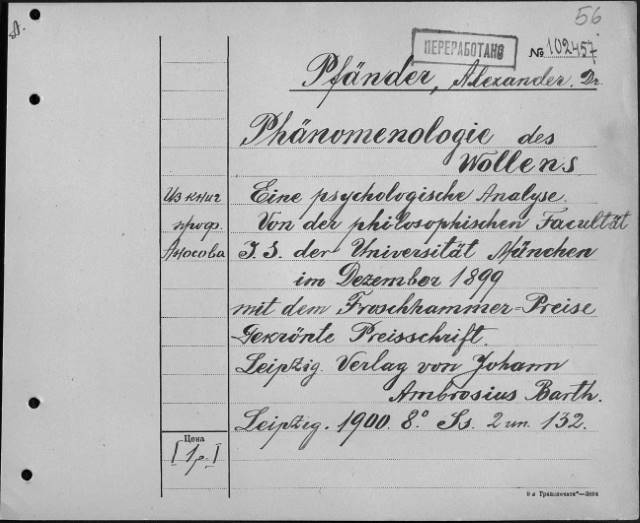 56
ПЕРЕРАБОТАНО
№ 102457
Pfänder, Alexander. Dr.
Phänomenologie des
Wollens.
Из книг
проф.
Аносова
Eine psychologische Analyse.
Von der philosophischen Facultät
I. S. der Universität München
im Dezember 1899
mit dem Froschhammer-Preise
Gekrönte Preisschrift.
Leipzig. Verlag von Johann
Ambrosius Barth.
Leipzig. 1900. 8° Ss. 2 un. 132.
Цена
[1 р.]